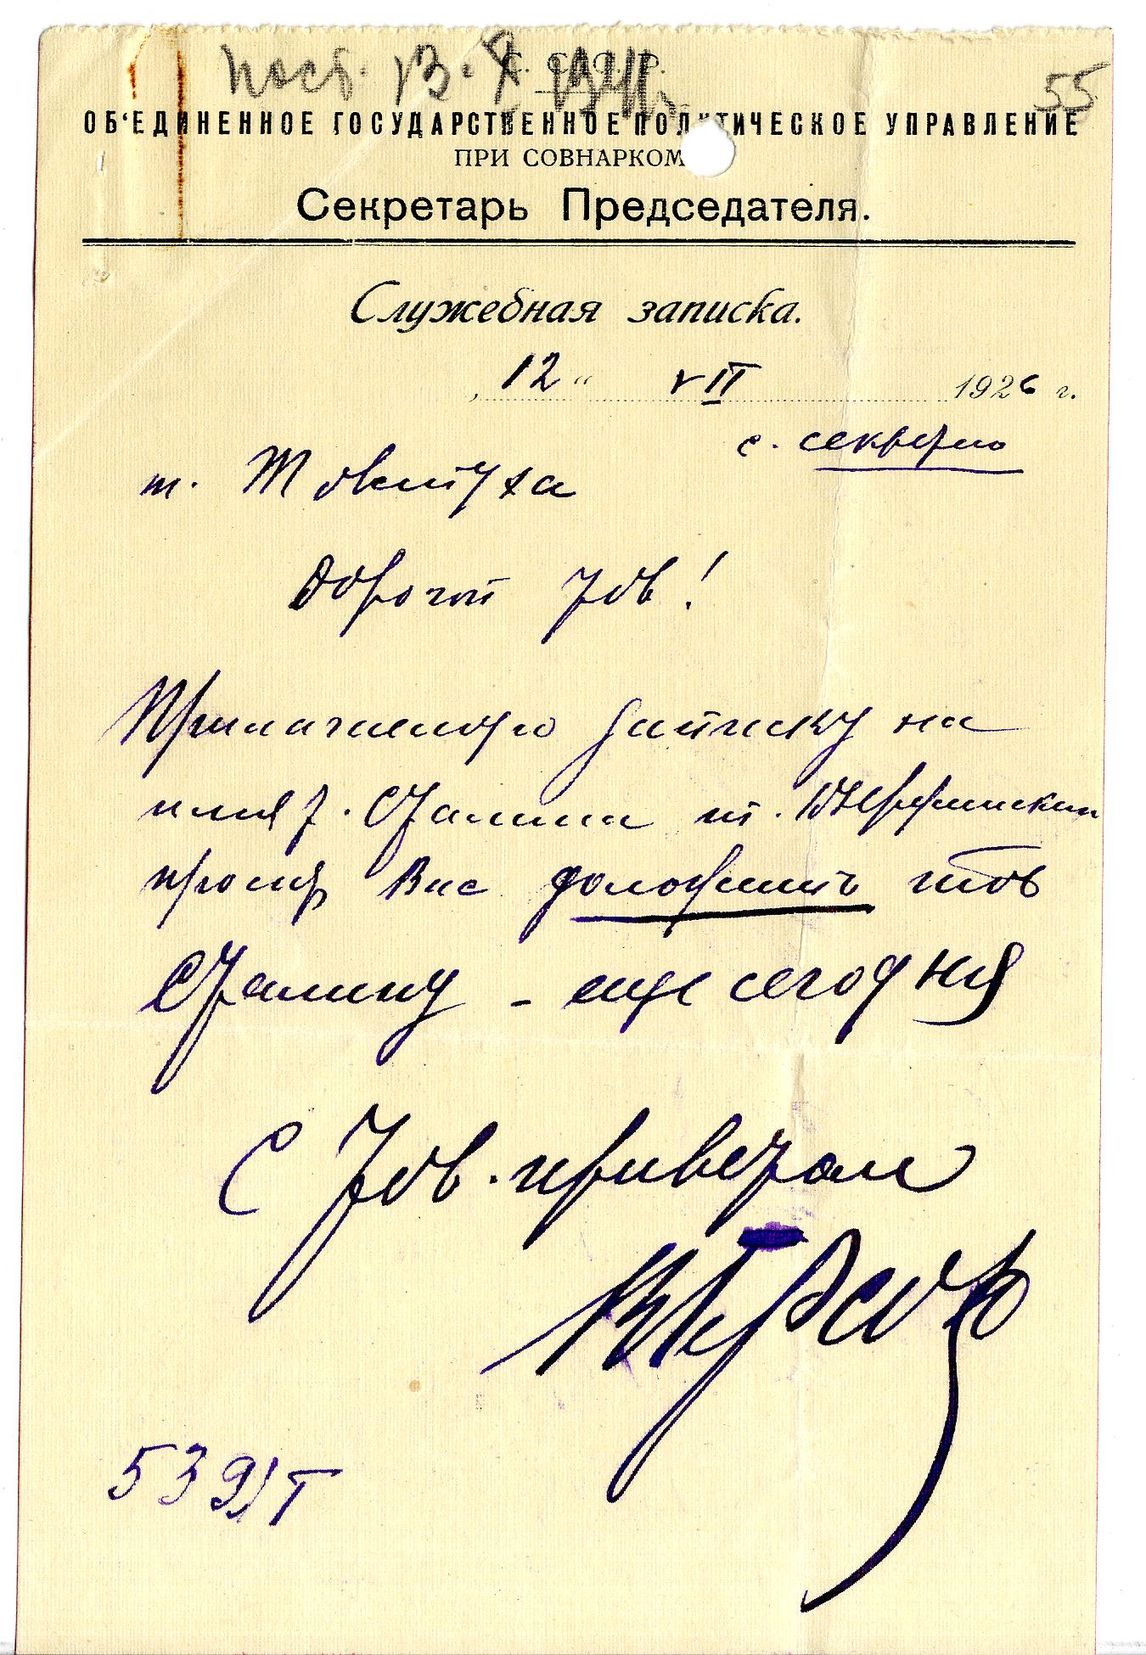 пост. 13. X 1941 г.
55
С. С. С. Р.
ОБ'ЕДИНЕННОЕ ГОСУДАРСТВЕННОЕ ПОЛИТИЧЕСКОЕ УПРАВЛЕНИЕ
ПРИ СОВНАРКОМ
Секретарь Председателя.
Служебная записка.
„ 12 “ VII 1926 г.
с. секретно
т. Товстуха
Дорогой тов!
Прилагаемую записку на
имя т. Сталина т. Дзержинский
просит Вас доложить тов
Сталину - еще сегодня
С тов. приветом
539/т